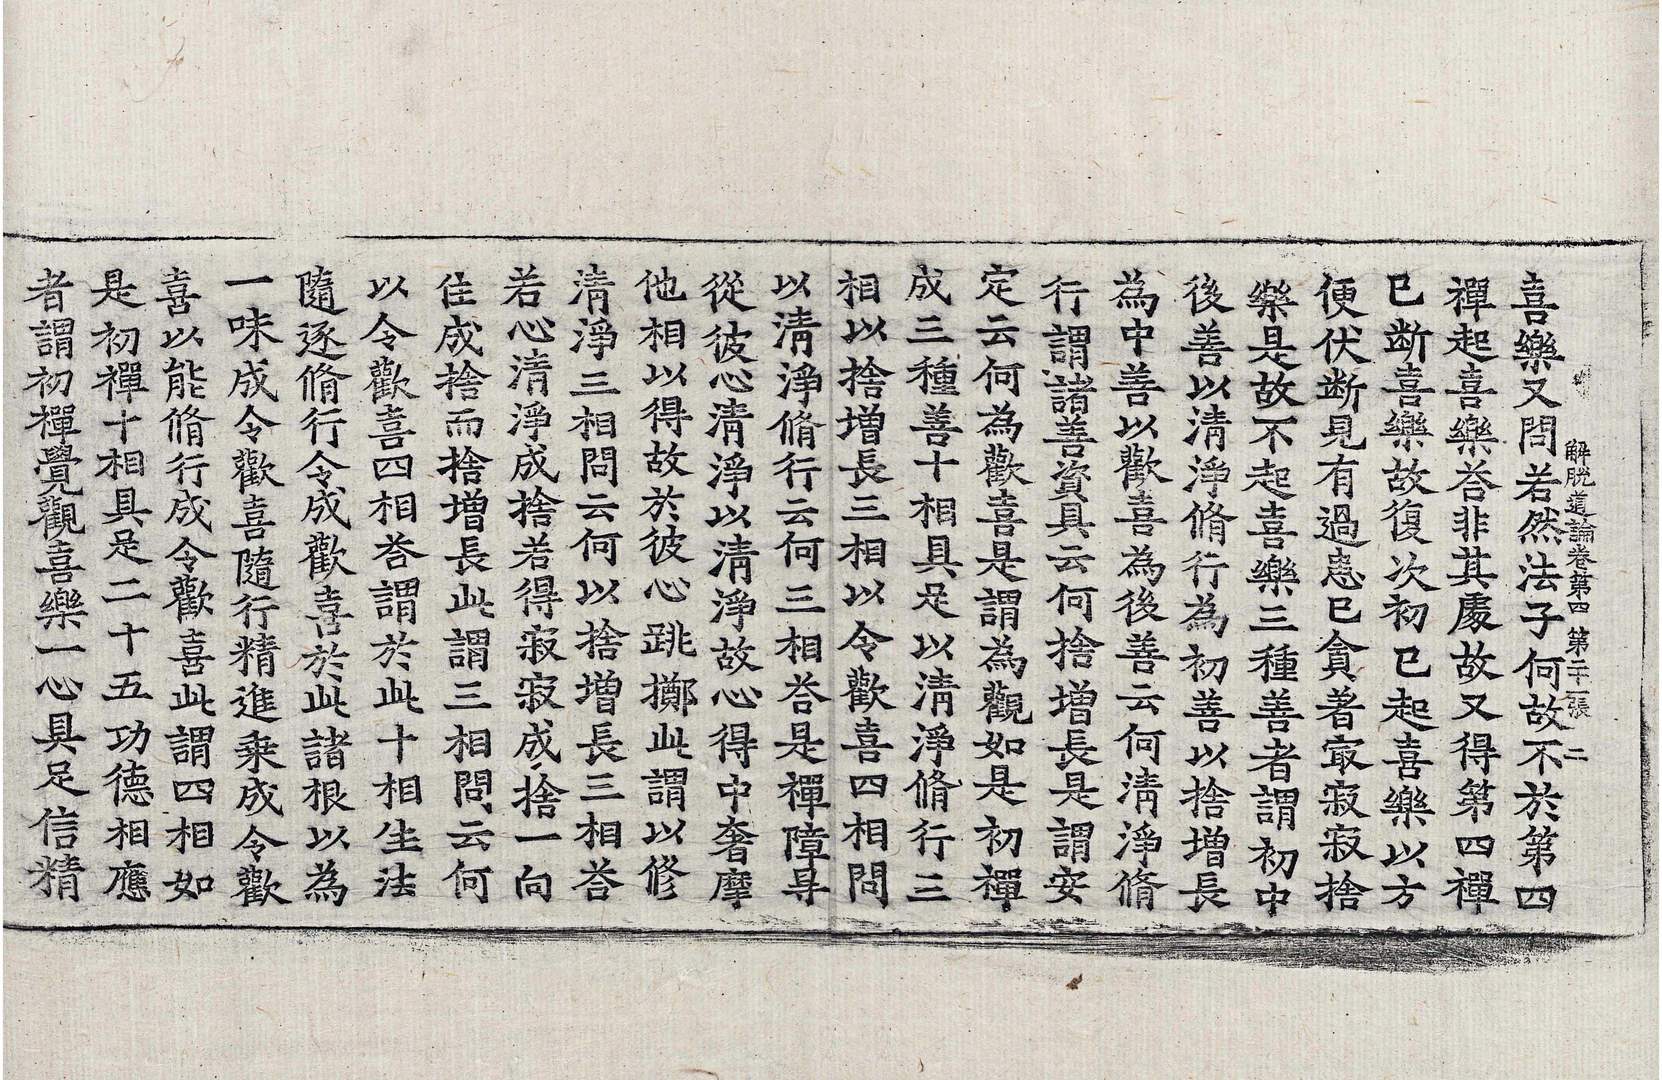 解脫道論卷第四 第二十張 二
喜樂又問若然法子何故不於第四
禪起喜樂荅非其處故又得第四禪
已断喜樂故復次初已起喜樂以方
便伏断見有過患已貪著寂寂捨
樂是故不起喜樂三種善者謂初中
後善以清淨脩行為初善以捨增長
為中善以歡喜為後善云何清淨脩
行謂諸善資具云何捨增長是謂安
定云何為歡喜是謂為觀如是初禪
成三種善十相具足以清淨脩行三
相以捨增長三相以令歡喜四相問
以清淨脩行云何三相荅是禪障㝵
從彼心清淨以清淨故心得中奢摩
他相以得故於彼心跳擲此謂以修
清淨三相問云何以捨增長三相荅
若心清淨成捨若得寂寂成捨一向
住成捨而捨增長此謂三相問云何
以令歡喜四相荅謂於此十相生法
隨逐脩行令成歡喜於此諸根以為
一味成令歡喜隨行精進乘成令歡
喜以能脩行成令歡喜此謂四相如
是初禪十相具足二十五功德相應
者謂初禪覺觀喜樂一心具足信精